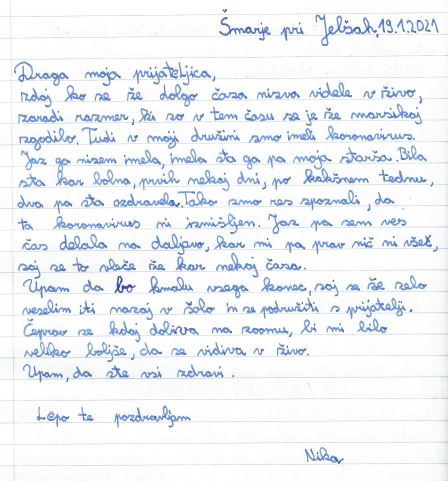 Šmarje pri Jelšah, 19.1.2021
Draga moja prijateljica,
zdaj ko se že dolgo časa nisva videle v živo,
zaradi razmer, ki so v tem času se je že marsikaj
zgodilo. Tudi v moji družini smo imeli koronavirus.
Jaz ga nisem imela, imela sta ga pa moja starša. Bila
sta kar bolna, prvih nekaj dni, po kakšnem tednu,
dva pa sta ozdravela. Tako smo res spoznali, da
ta koronavirus ni izmišljen. Jaz pa sem ves
čas delala na daljavo, kar mi pa prav nič ni všeč,
saj se to vleče že kar nekaj časa.
Upam da bo kmalu vsega konec, saj se že zelo
veselim iti nazaj v šolo in se podružiti s prijatelji.
Čeprav se kdaj dobiva na zoomu, bi mi bilo
veliko boljše, da se vidiva v živo.
Upam, da ste vsi zdravi.
Lepo te pozdravljam
Nika